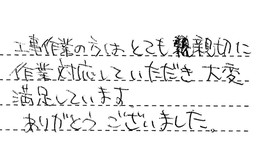 工事作業の方は、とても親切に
作業対応していただき大変
満足しています。
ありがとうございました。